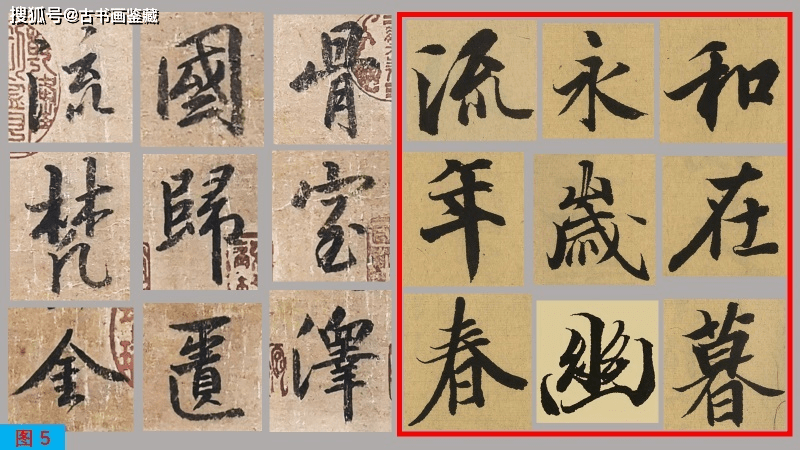 搜狐号@古书画鉴藏
流 國 骨
梵 歸 室
金 匱 澤
流 永 和
年 歲 在
春 幽 暮
图 5